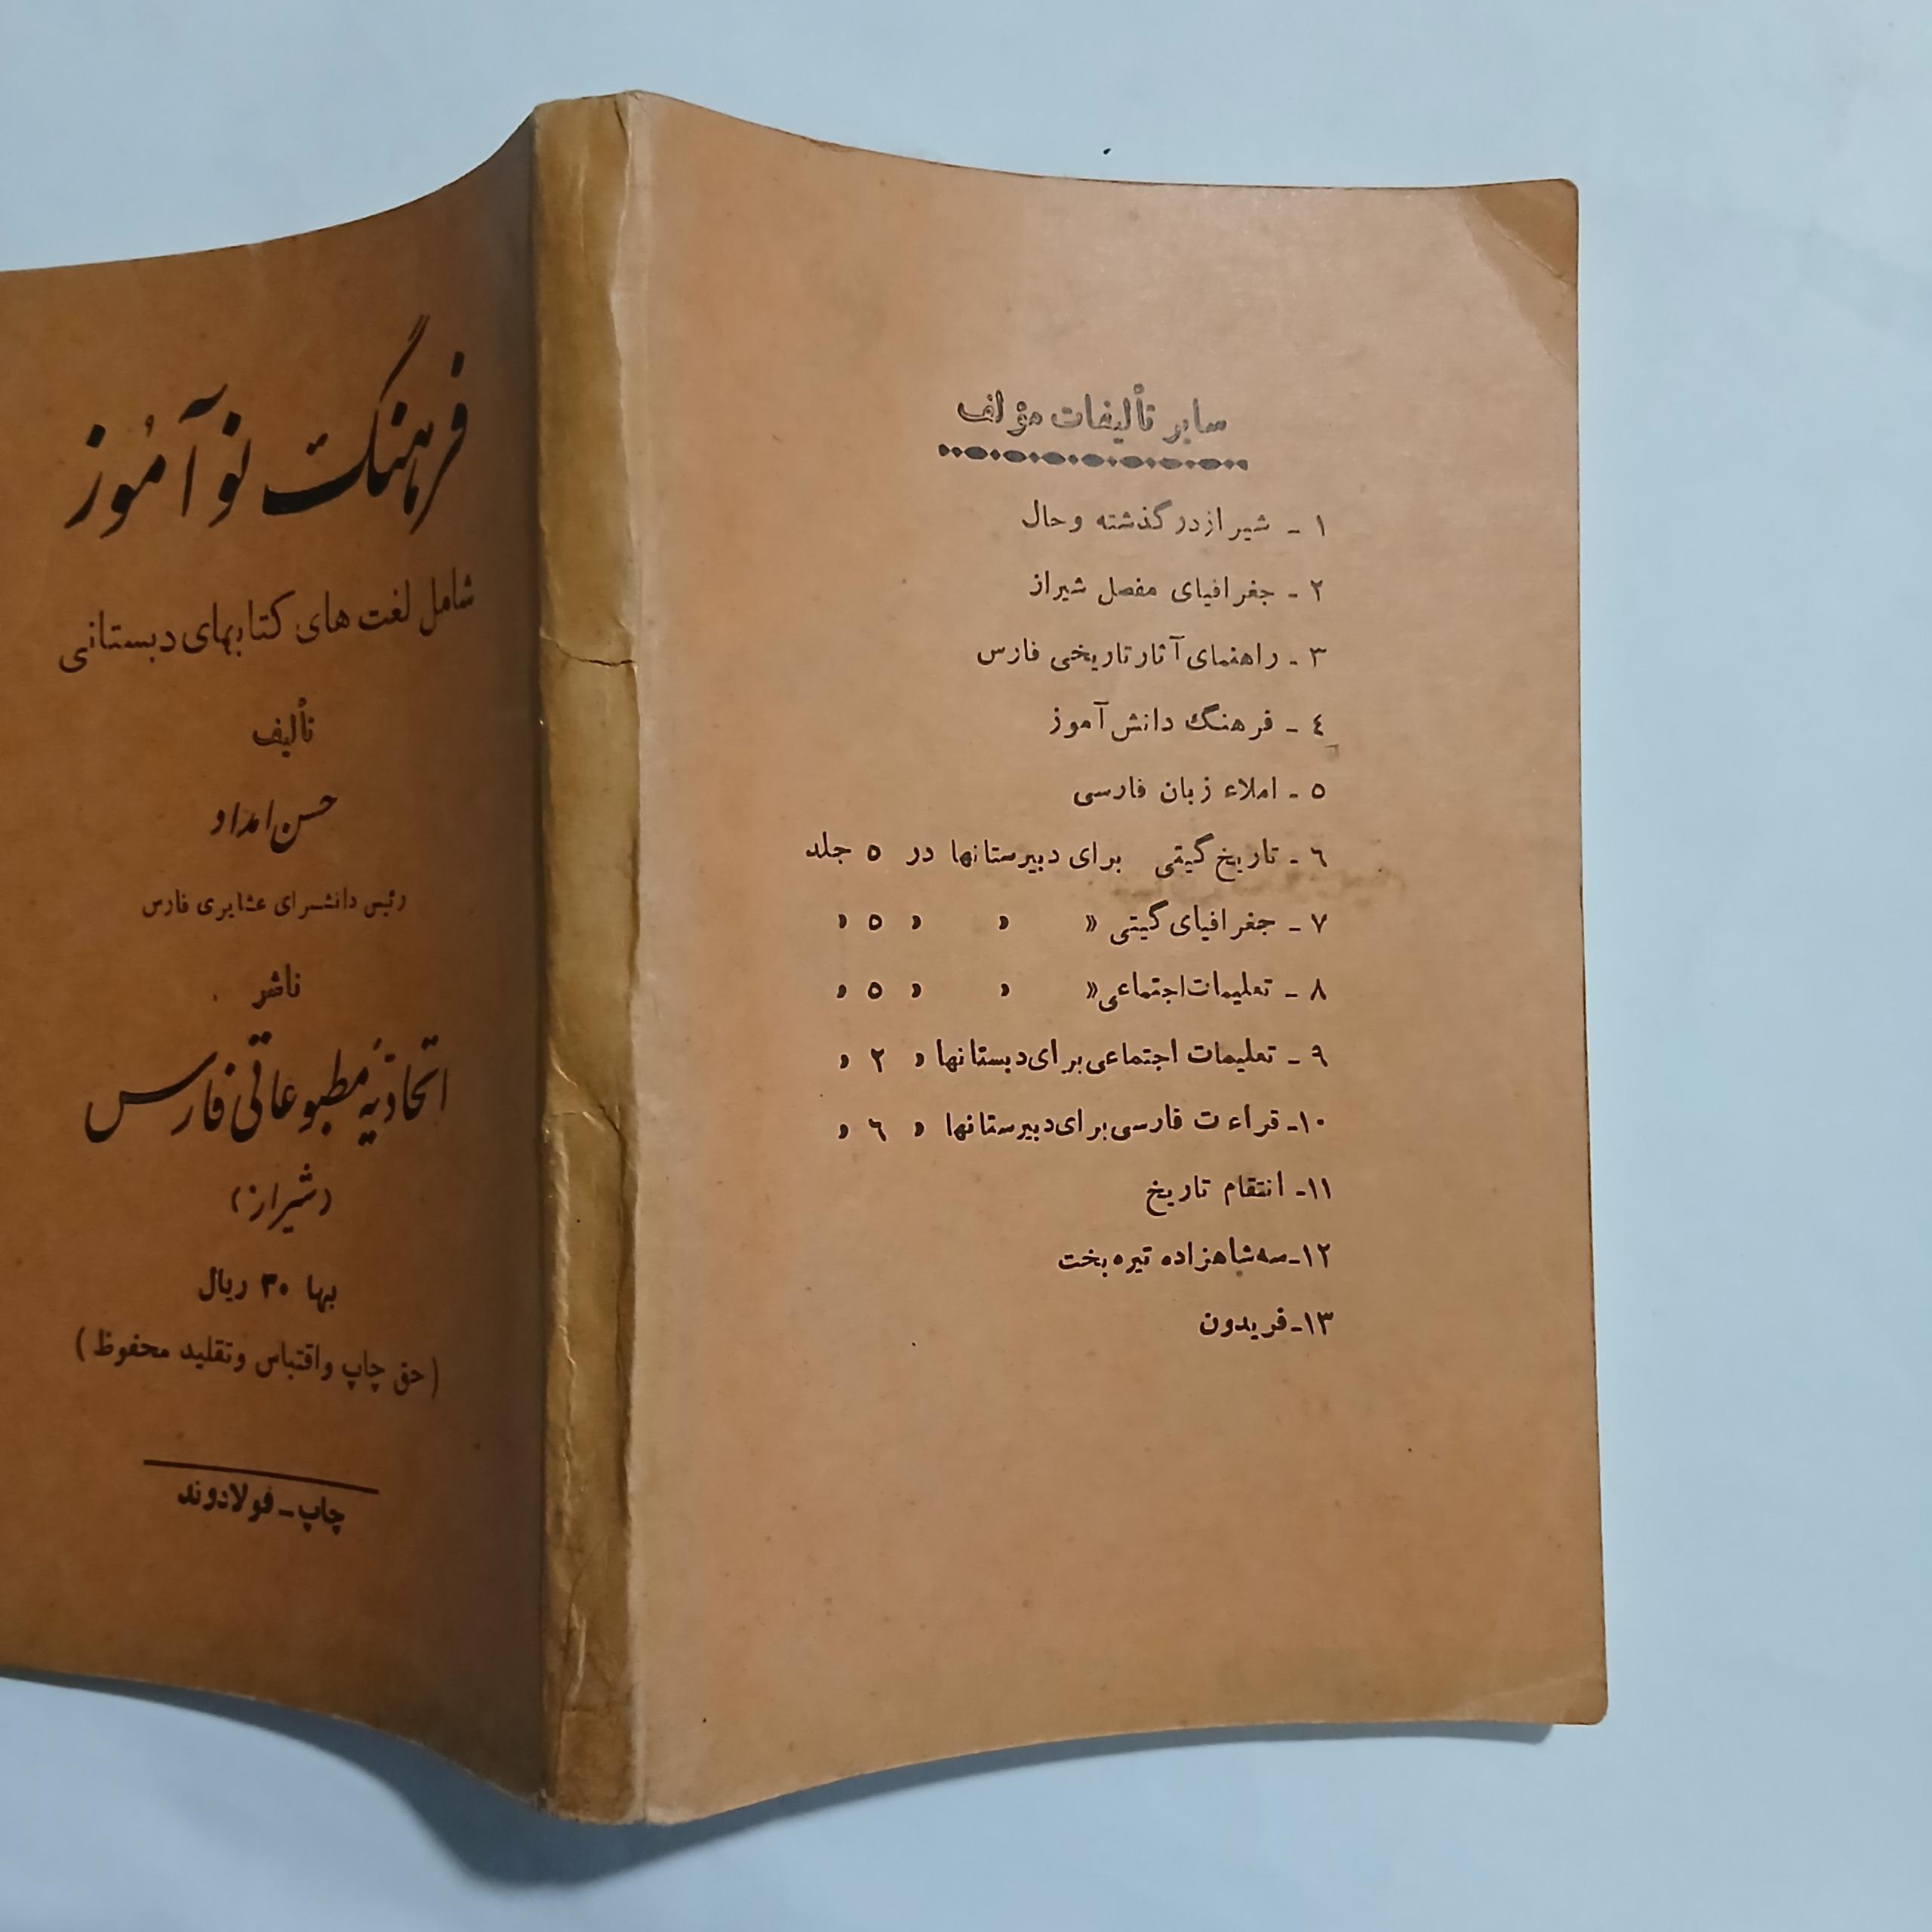 فرهنگ نوآموز
شامل لغت های کتابهای دبستانی
تألیف
حسن امداد
رئیس دانشسرای عشایری فارس
ناشر
اتحادیه مطبوعاتی فارس
(شیراز)
بها ۳۰ ریال
(حق چاپ واقتباس وتقلید محفوظ)
چاپ ـ فولادوند
سایر تألیفات مؤلف
۱ ـ شیراز در گذشته و حال
۲ ـ جغرافیای مفصل شیراز
۳ ـ راهنمای آثار تاریخی فارس
٤ ـ فرهنگ دانش آموز
٥ ـ املاء زبان فارسی
٦ ـ تاریخ گیتی برای دبیرستانها در ٥ جلد
۷ ـ جغرافیای گیتی » » » ٥ »
۸ ـ تعلیمات اجتماعی » » » ٥ »
۹ ـ تعلیمات اجتماعی برای دبستانها » ۲ »
۱۰ـ قراءت فارسی برای دبیرستانها » ٦ »
۱۱ـ انتقام تاریخ
۱۲ـ سه شاهزاده تیره بخت
۱۳ـ فریدون